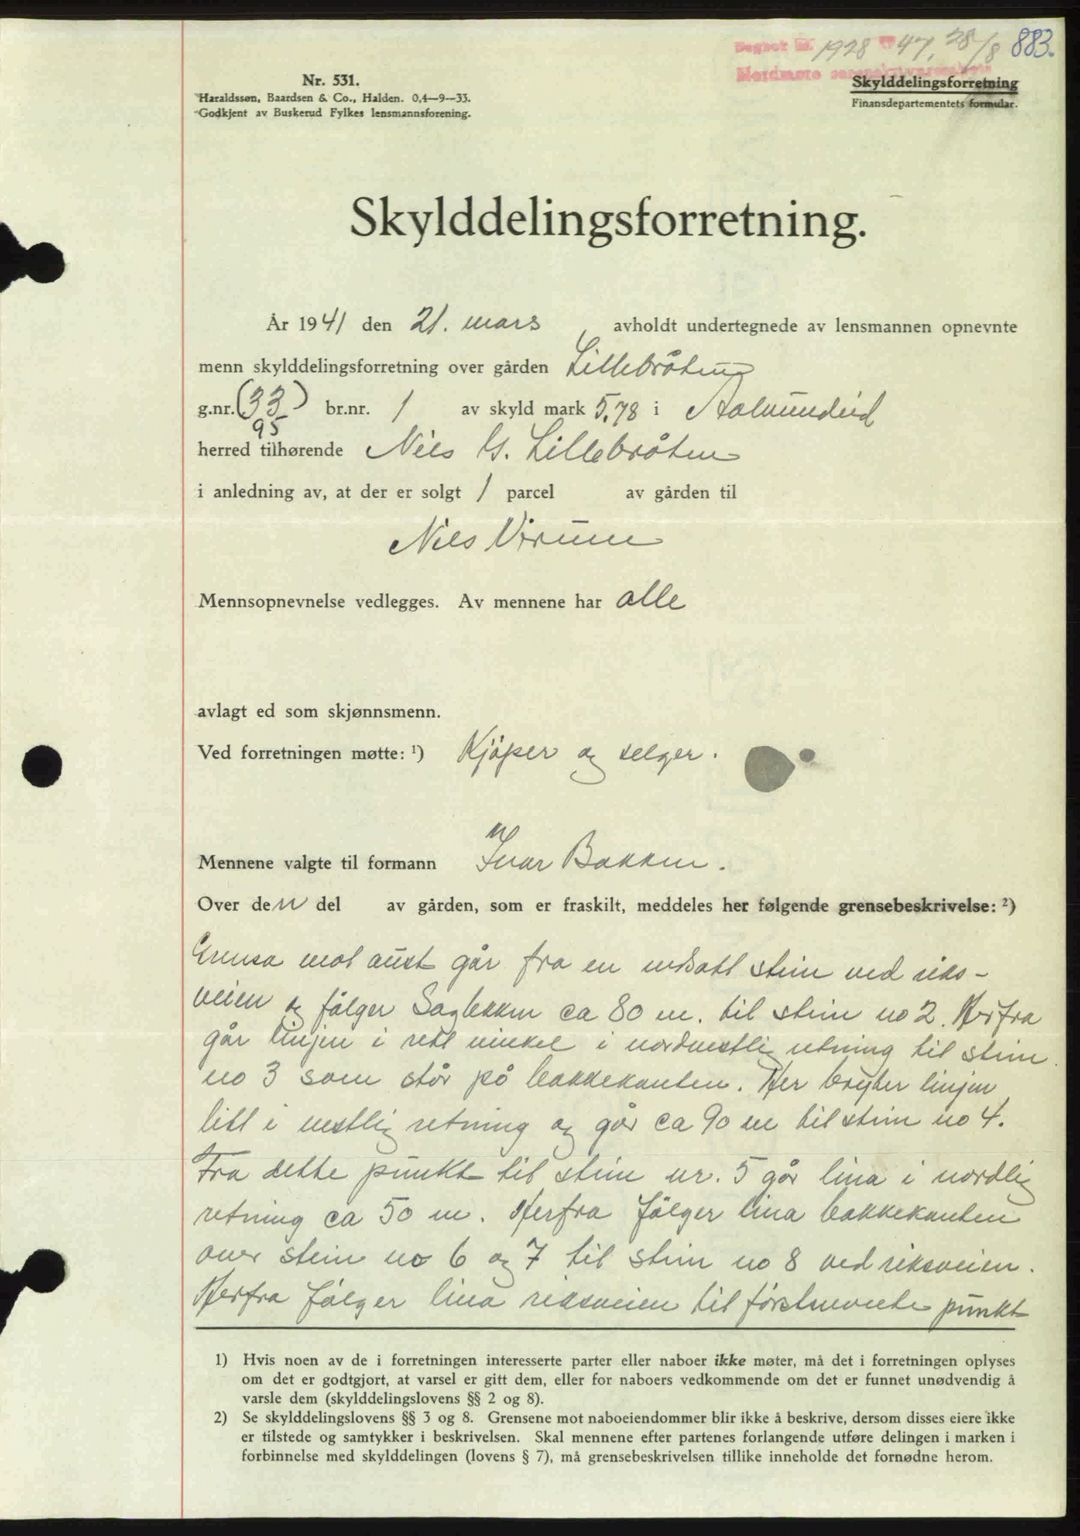 Dagbok nr. 1928 19 47, 28/8 883.
Nordmøre sorenskriverembete
Nr. 531.
Haraldssøn, Baardsen & Co., Halden. 0,4—9—33.
Godkjent av Buskerud Fylkes lensmannsforening.
Skylddelingsforretning
Finansdepartementets formular.
Skylddelingsforretning.
År 1941 den 21. mars , avholdt undertegnede av lensmannen opnevnte
menn skylddelingsforretning over gården Lillebråten
g.nr. (33) br.nr. 1 av skyld mark 5,78 i
95
herred tilhørende Nils G. Lillebråten
i anledning av, at der er solgt 1 parcel av gården til
Nils Virum
Mennsopnevnelse vedlegges. Av mennene har alle
avlagt ed som skjønnsmenn.
Ved forretningen møtte: ¹) Kjöper og selger.
Mennene valgte til formann Ivar Bakken.
Over den del av gården, som er fraskilt, meddeles her følgende grensebeskrivelse: ²)
Grensa mot aust går fra en nedsatt stein ved riks-
veien og fölger Sagbekken ca 80 m. til stein no 2. Herfra
går linjen i rett vinkel i nordvestlig retning til stein
no 3 som står på bakkekanten. Her bryter linjen
litt i vestlig retning og går ca 90 m til stein no 4.
Fra dette punkt til stein nr. 5 går lina i nordlig
retning ca 50 m. Herfra fölger lina bakkekanten
over stein no 6 og 7 til stein no 8 ved riksveien.
Herfra fölger lina riksveien til förstnevnte punkt
1) Hvis noen av de i forretningen interesserte parter eller naboer ikke møter, må det i forretningen oplyses
om det er godtgjort, at varsel er gitt dem, eller for naboers vedkommende om det er funnet unødvendig å
varsle dem (skylddelingslovens §§ 2 og 8).
2) Se skylddelingslovens §§ 3 og 8. Grensene mot naboeiendommer blir ikke å beskrive, dersom disses eiere ikke
er tilstede og samtykker i beskrivelsen. Skal mennene efter partenes forlangende utføre delingen i marken i
forbinnelse med skylddelingen (lovens § 7), må grensebeskrivelsen tillike inneholde det fornødne herom.